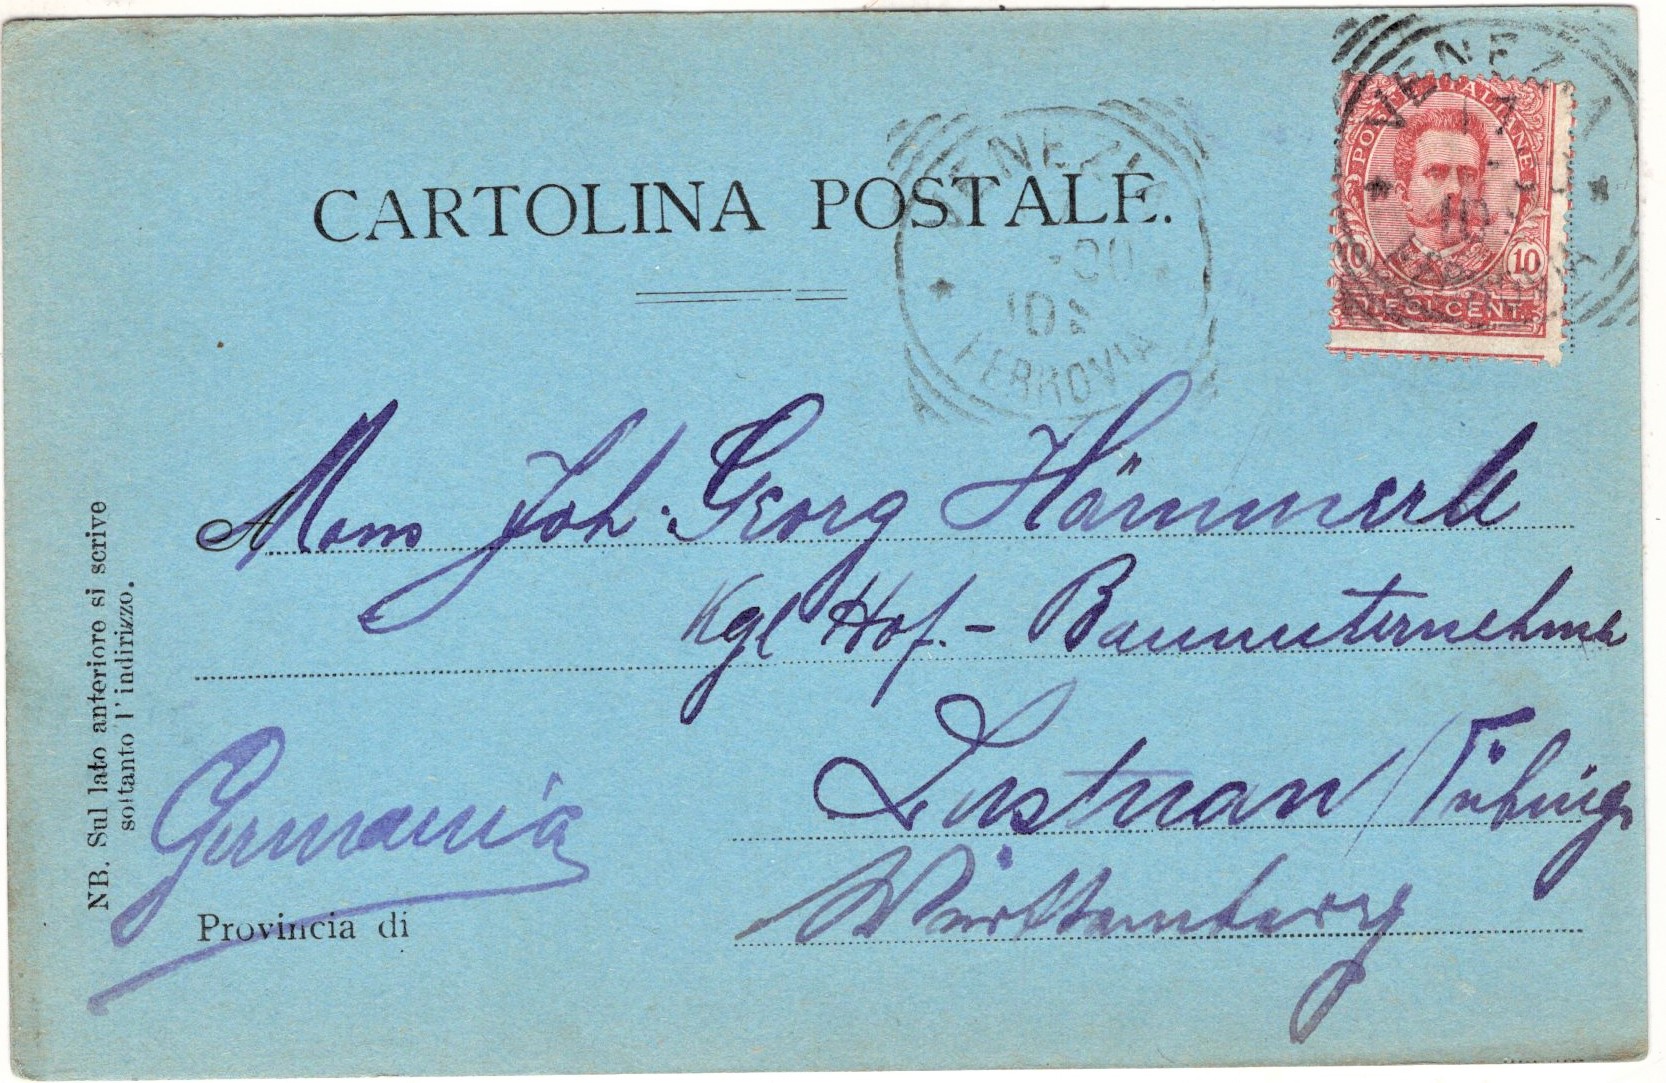 CARTOLINA POSTALE.
VENEZIA
FERROVIA
VENEZIA
POSTE ITALIANE
10 10
DIECI CENT.
A Mons Joh. Georg Hämmerle
Kgl Hof.- Bauunternehmer
Lustnau / Tübing.
Württemberg
Germania
Provincia di
NB. Sul lato anteriore si scrive
soltanto l'indirizzo.